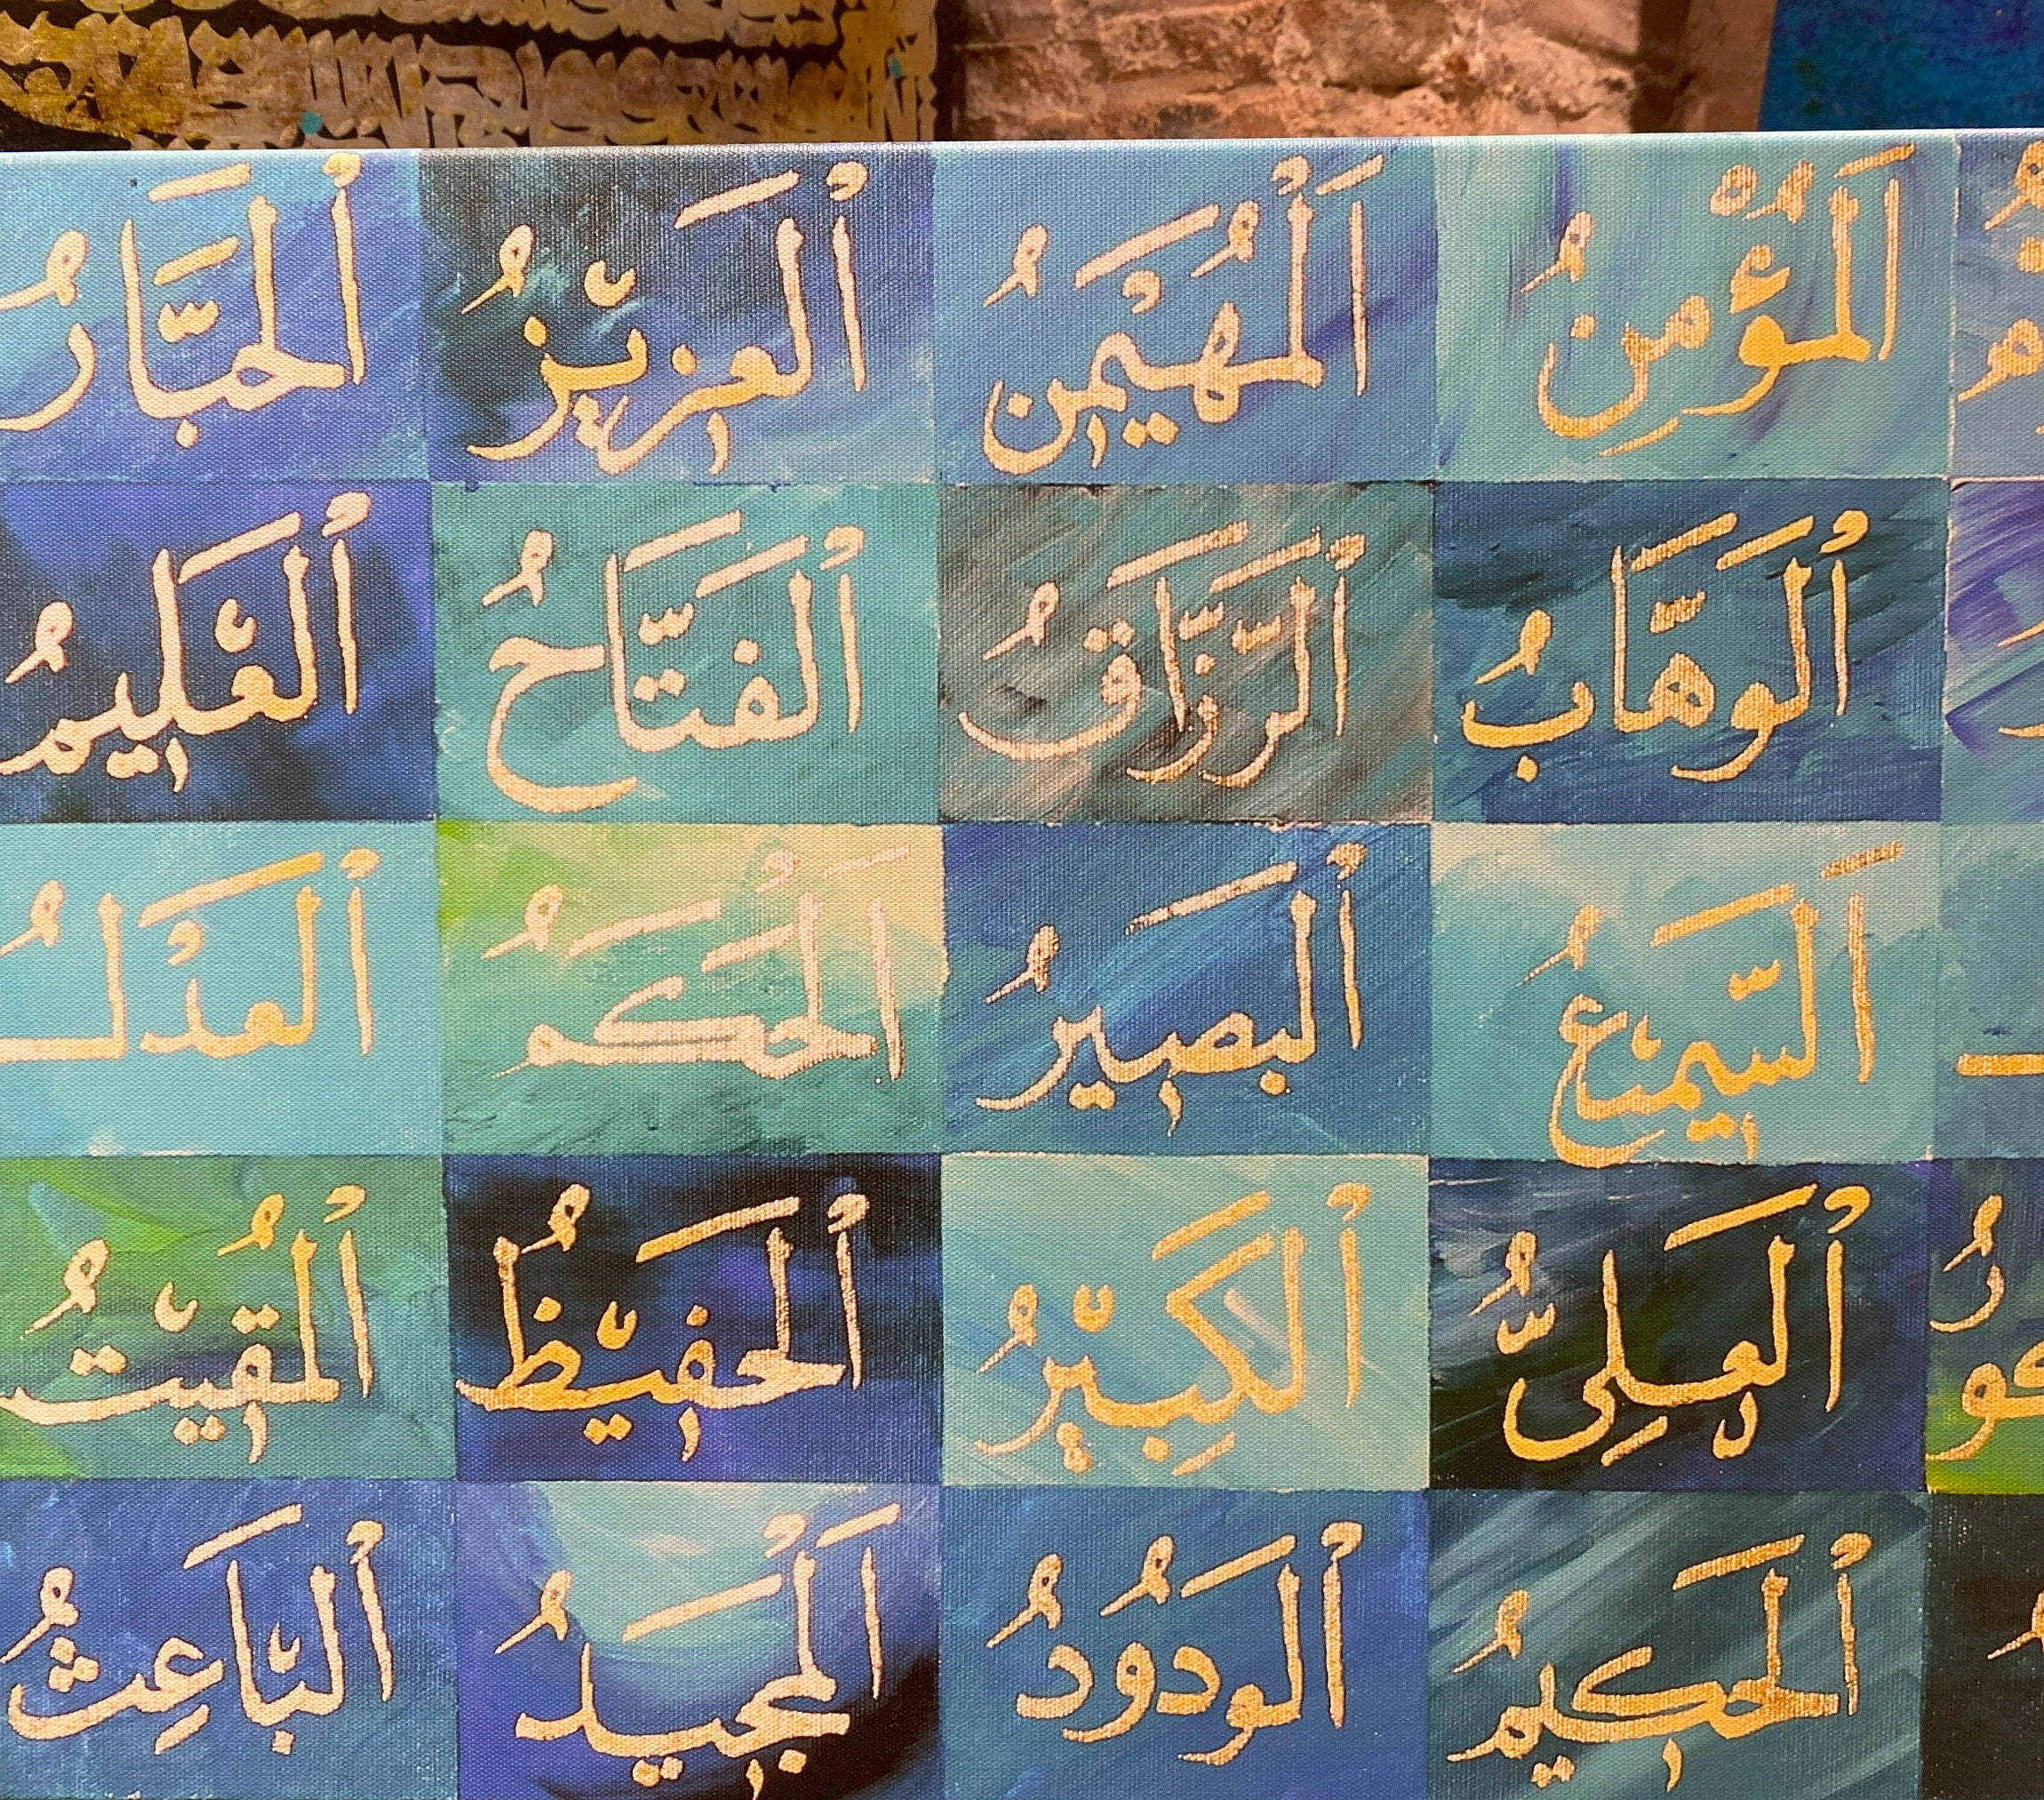 اَلْمُؤْمِنُ اَلْمُهَيْمِنُ اَلْعَزِيْزُ اَلْجَبَّارُ
اَلْوَهَّابُ اَلْرَّزَّاقُ اَلْفَتَّاحُ اَلْعَلِيمُ
اَلْسَّمِيعُ اَلْبَصِيرُ اَلْحَكَمُ اَلْعَدْلُ
اَلْعَلِىُّ اَلْكَبِيْرُ اَلْحَفِيْظُ اَلْمُقِيْتُ
اَلْحَكِيمُ اَلْوَدُودُ اَلْمَجِيدُ اَلْبَاعِثُ